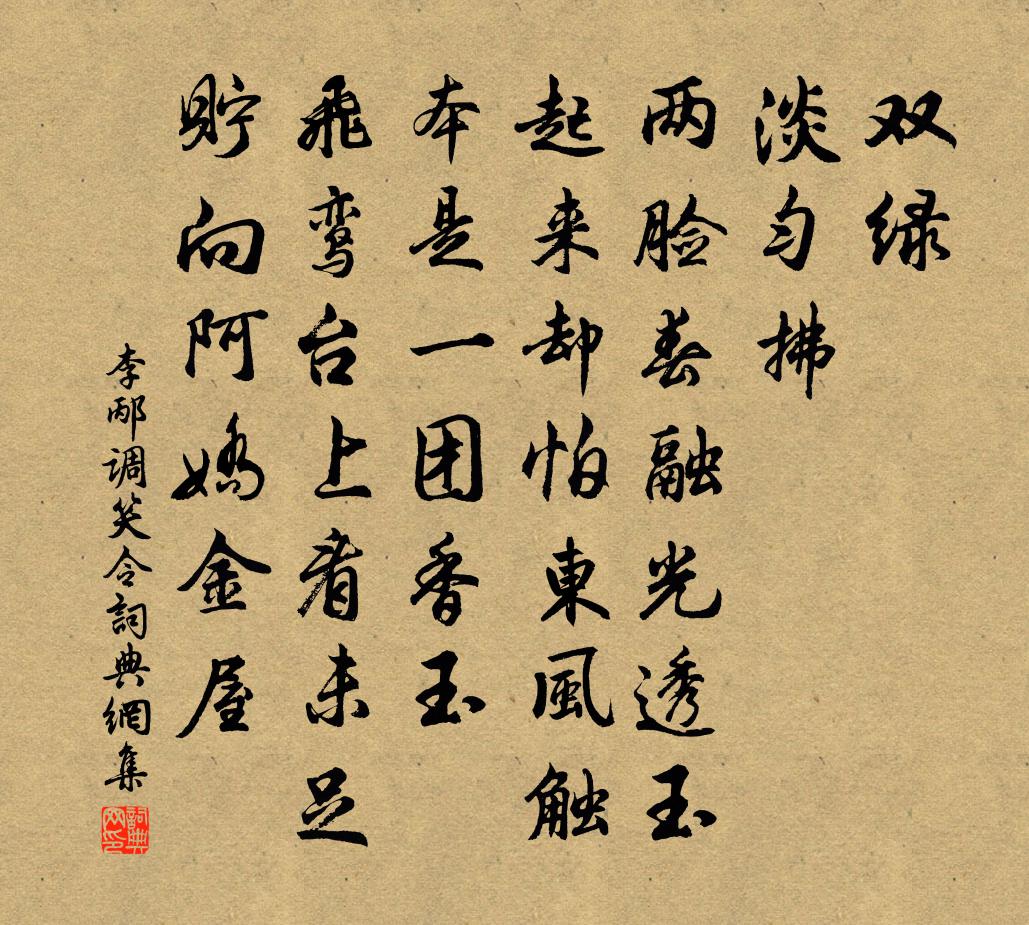 双绿
淡匀拂
两脸春融光透玉
起来却怕東風触
本是一团香玉
飛鸾台上看未足
貯向阿嬌金屋
李邴调笑令詞典網集
詞典网印